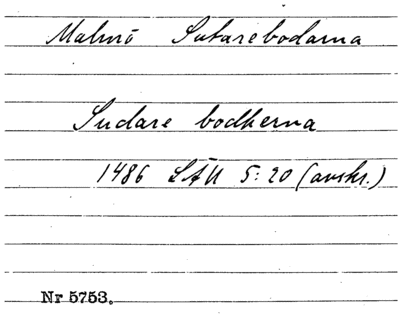 Malmö Sutarebodarna
Sudare bodherna
1486 LÄU 5:20 (avskr.)
Nr 5753.